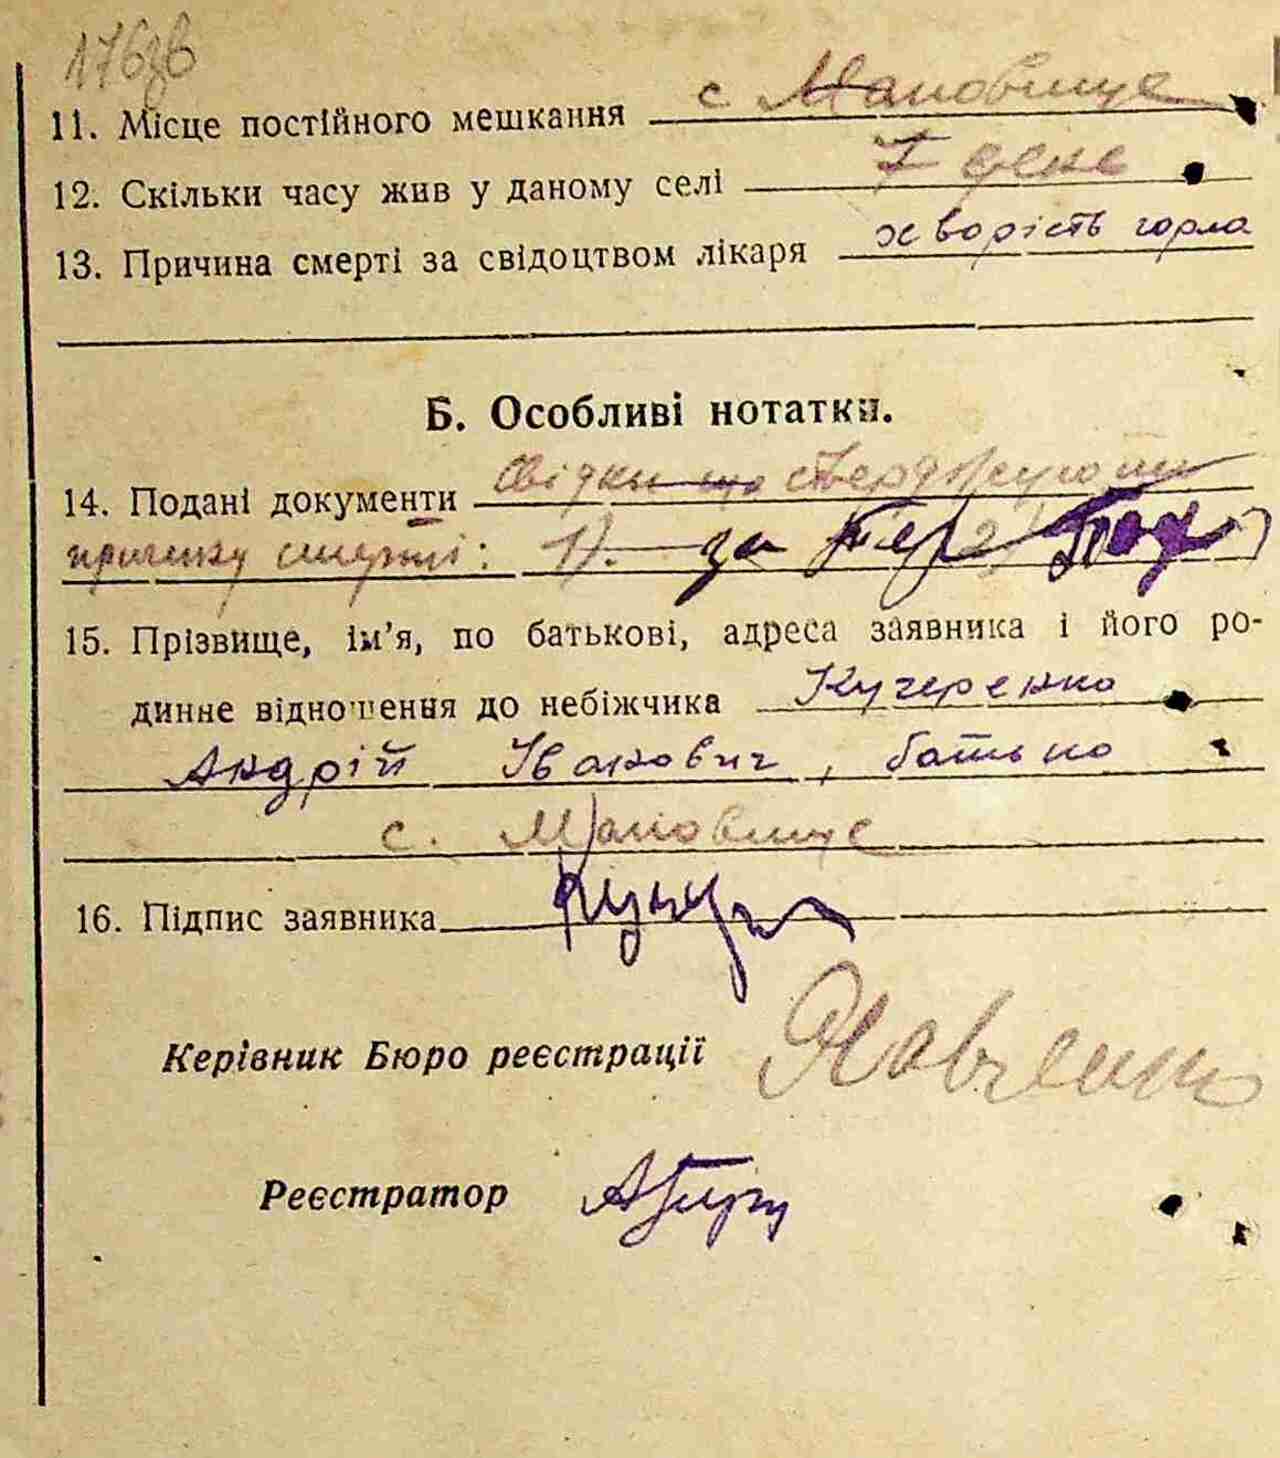 11. Місце постійного мешкання с Мановище
12. Скільки часу жив у даному селі 7 дене
13. Причина смерті за свідоцтвом лікаря хворість горла
Б. Особливі нотатки.
14. Подані документи Свідки що стверджують
причину смерті: 1). за 2)
15. Прізвище, ім'я, по батькові, адреса заявника і його ро-
динне відношення до небіжчика Кучеренко
Андрій Іванович, батько
с. Мановище
16. Підпис заявника
Керівник Бюро реєстрації
Реєстратор